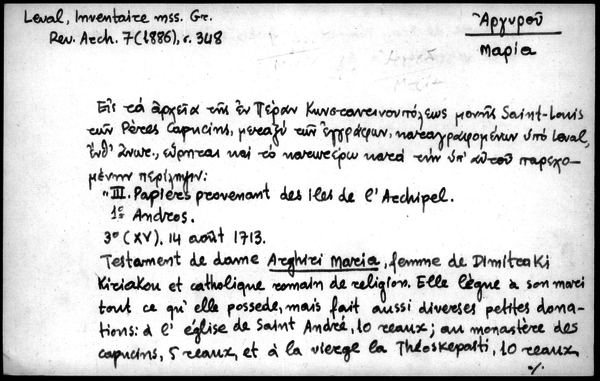 Leval, Inventaire mss. Gr.
Rev. Arch. 7 (1886), σ. 348
Ἀργυροῦ
Μαρία
Εἰς τὰ ἀρχεῖα τῆς ἐν Πέραν Κωνσταντινουπόλεως μονῆς Saint-Louis
τῶν Pères Capucins, μεταξὺ τῶν ἐγγράφων, καταγραφομένων ὑπὸ Leval,
ἔνθ' ἄνωτ., εὕρηται καὶ τὸ κατωτέρω κατὰ τὴν ὑπ' αὐτοῦ παρεχο-
μένην περίληψιν:
"III. Papiers provenant des iles de l'Archipel.
1º Andros.
3º (XV). 14 août 1713.
Testament de dame Arghiri Maria, femme de Dimitraki
Kiriakou et catholique romain de religion. Elle lègue à son mari
tout ce qu'elle possede, mais fait aussi diverses petites dona-
tions: à l'église de Saint André, 10 reaux; au monastère des
capucins, 5 reaux, et à la vierge la Théoskepasti, 10 reaux,
%.